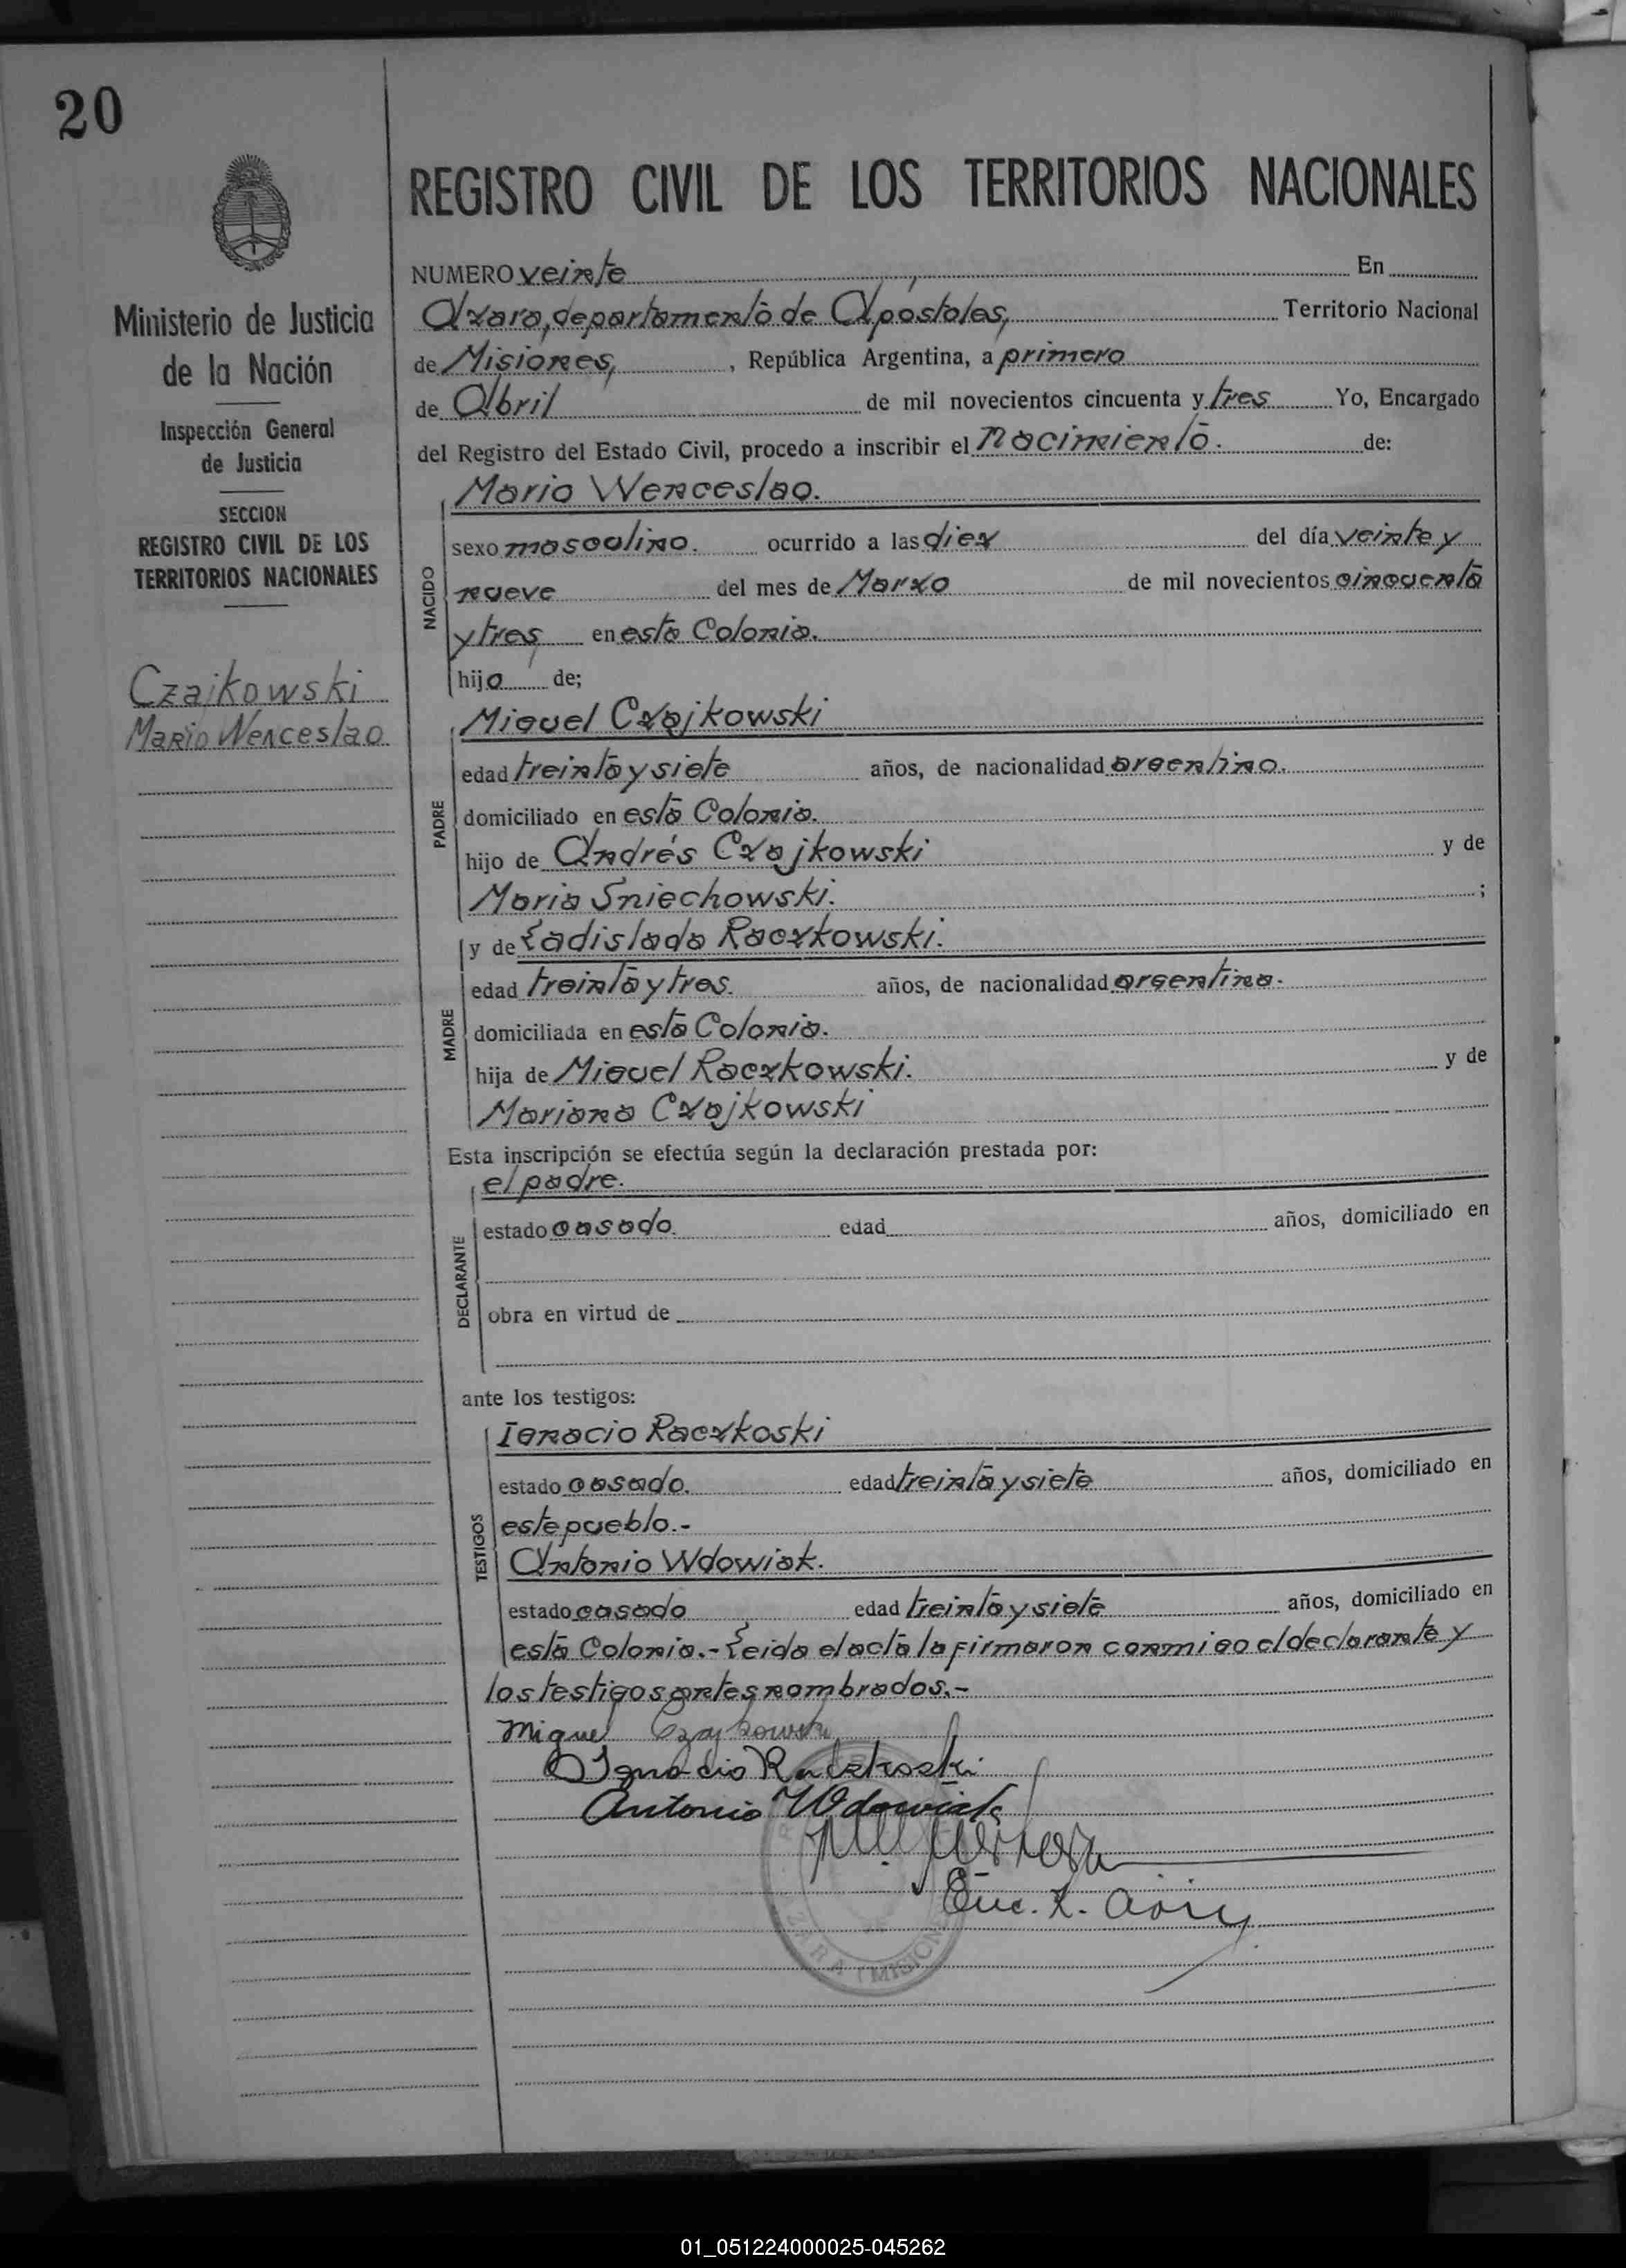 20
REGISTRO CIVIL DE LOS TERRITORIOS NACIONALES
Ministerio de Justicia
de la Nación
Inspección General
de Justicia
SECCION
REGISTRO CIVIL DE LOS
TERRITORIOS NACIONALES
Czajkowski
Mario Wenceslao
NUMERO veinte En
Azara, departamento de Apóstoles, Territorio Nacional
de Misiones, , República Argentina, a primero
de Abril de mil novecientos cincuenta y tres Yo, Encargado
del Registro del Estado Civil, procedo a inscribir el Nacimiento. de:
Mario Wenceslao.
NACIDO
sexo masculino. ocurrido a las diez del día veinte y
nueve del mes de Marzo de mil novecientos cincuenta
y tres en esta Colonia.
hijo de;
Miguel Czajkowski
PADRE
edad treinta y siete años, de nacionalidad argentino.
domiciliado en esta Colonia.
hijo de Andrés Czajkowski y de
Maria Sniechowski. ;
MADRE
y de Ladislada Raczkowski.
edad treinta y tres. años, de nacionalidad argentina.
domiciliada en esta Colonia.
hija de Miguel Raczkowski. y de
Mariana Czajkowski
Esta inscripción se efectúa según la declaración prestada por:
el padre.
DECLARANTE
estado casado. edad años, domiciliado en
obra en virtud de
ante los testigos:
TESTIGOS
Ignacio Raczkoski
estado casado. edad treinta y siete años, domiciliado en
este pueblo.-
Antonio Wdowiak.
estado casado edad treinta y siete años, domiciliado en
esta Colonia.- Leida el acta la firmaron conmigo el declarante y
los testigos antes nombrados.-
Miguel Czajkowski
Ignacio Raczkoski
Antonio Wdowiak
Enc. R. Civil
01_051224000025-045262